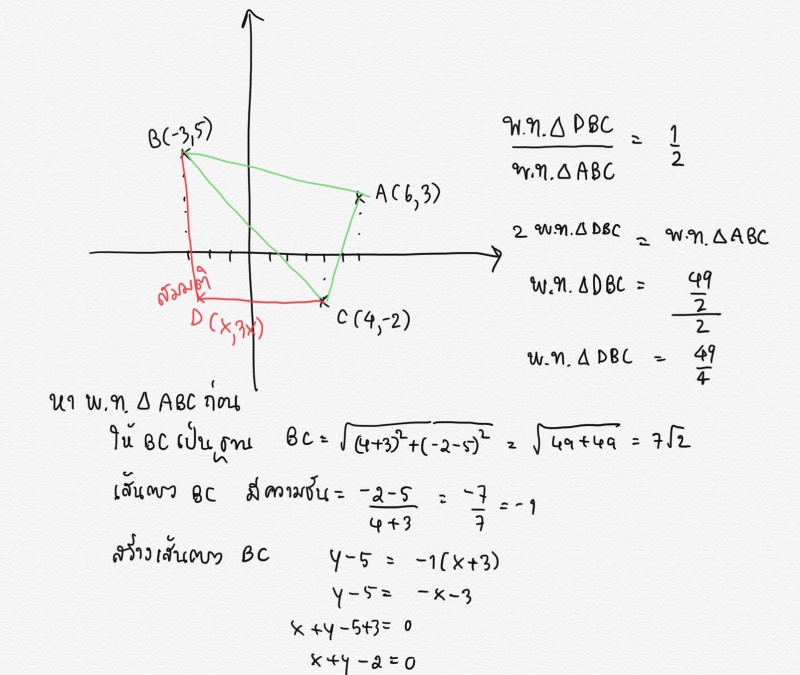 B(-3,5)
A(6,3)
สมมติ
D(x,3x)
C(4,-2)
พ.ท.△DBC / พ.ท.△ABC = 1/2
2 พ.ท.△DBC = พ.ท.△ABC
พ.ท.△DBC = (49/2)/2
พ.ท.△DBC = 49/4
หา พ.ท.△ABC ก่อน
ให้ BC เป็นฐาน BC = √((4+3)²+(-2-5)²) = √(49+49) = 7√2
เส้นตรง BC มีความชัน = (-2-5)/(4+3) = -7/7 = -1
สร้างเส้นตรง BC y-5 = -1(x+3)
y-5 = -x-3
x+y-5+3 = 0
x+y-2 = 0